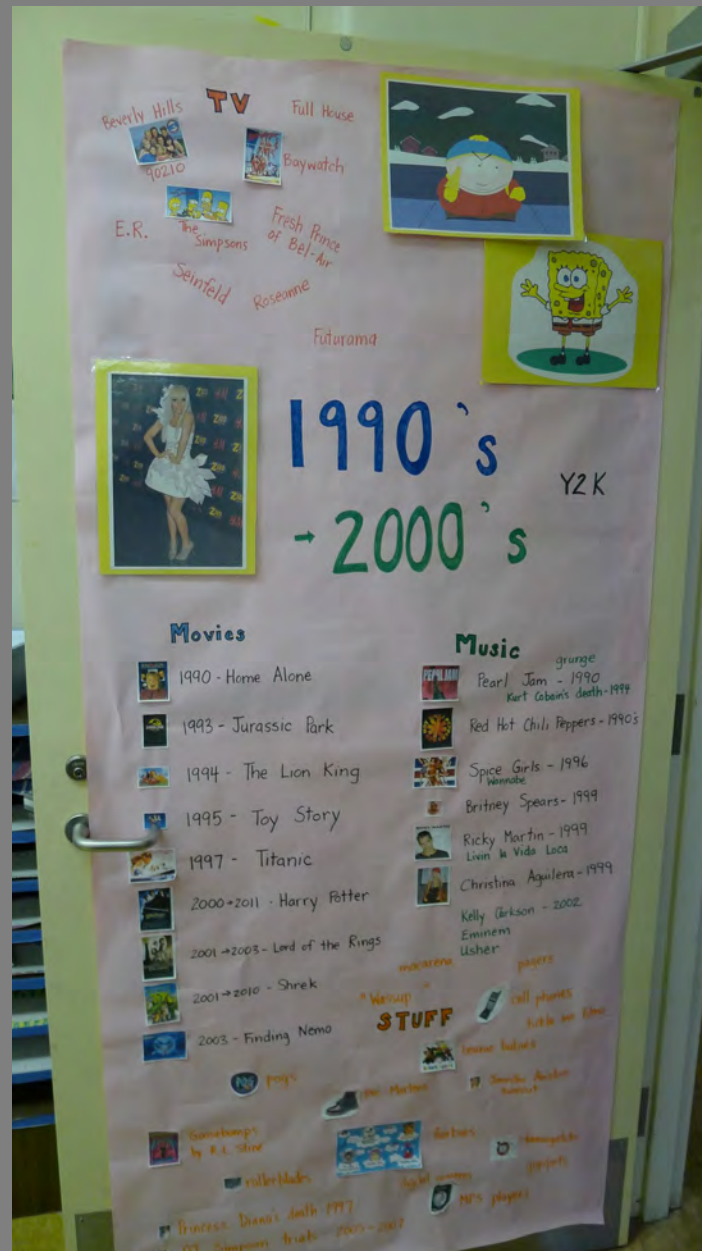 TV
Beverly Hills
90210
Full House
Baywatch
E.R.
The
Simpsons
Fresh Prince
of Bel-Air
Seinfeld
Roseanne
Futurama
1990's
→ 2000's
Y2K
Movies
1990 - Home Alone
1993 - Jurassic Park
1994 - The Lion King
1995 - Toy Story
1997 - Titanic
2000→2011 - Harry Potter
2001→2003 - Lord of the Rings
2001→2010 - Shrek
2003 - Finding Nemo
Music
grunge
Pearl Jam - 1990
Kurt Cobain's death - 1994
Red Hot Chili Peppers - 1990's
Spice Girls - 1996
Wannabe
Britney Spears - 1999
Ricky Martin - 1999
Livin la Vida Loca
Christina Aguilera - 1999
Kelly Clarkson - 2002
Eminem
Usher
macarena
pagers
"Wassup"
STUFF
cell phones
beanie babies
pogs
Doc Martens
Jennifer Aniston
haircut
Goosebumps
by R.L. Stine
furbies
tamagotchi
rollerblades
digital cameras
MP3 players
Princess Diana's death - 1997
OJ Simpson trials